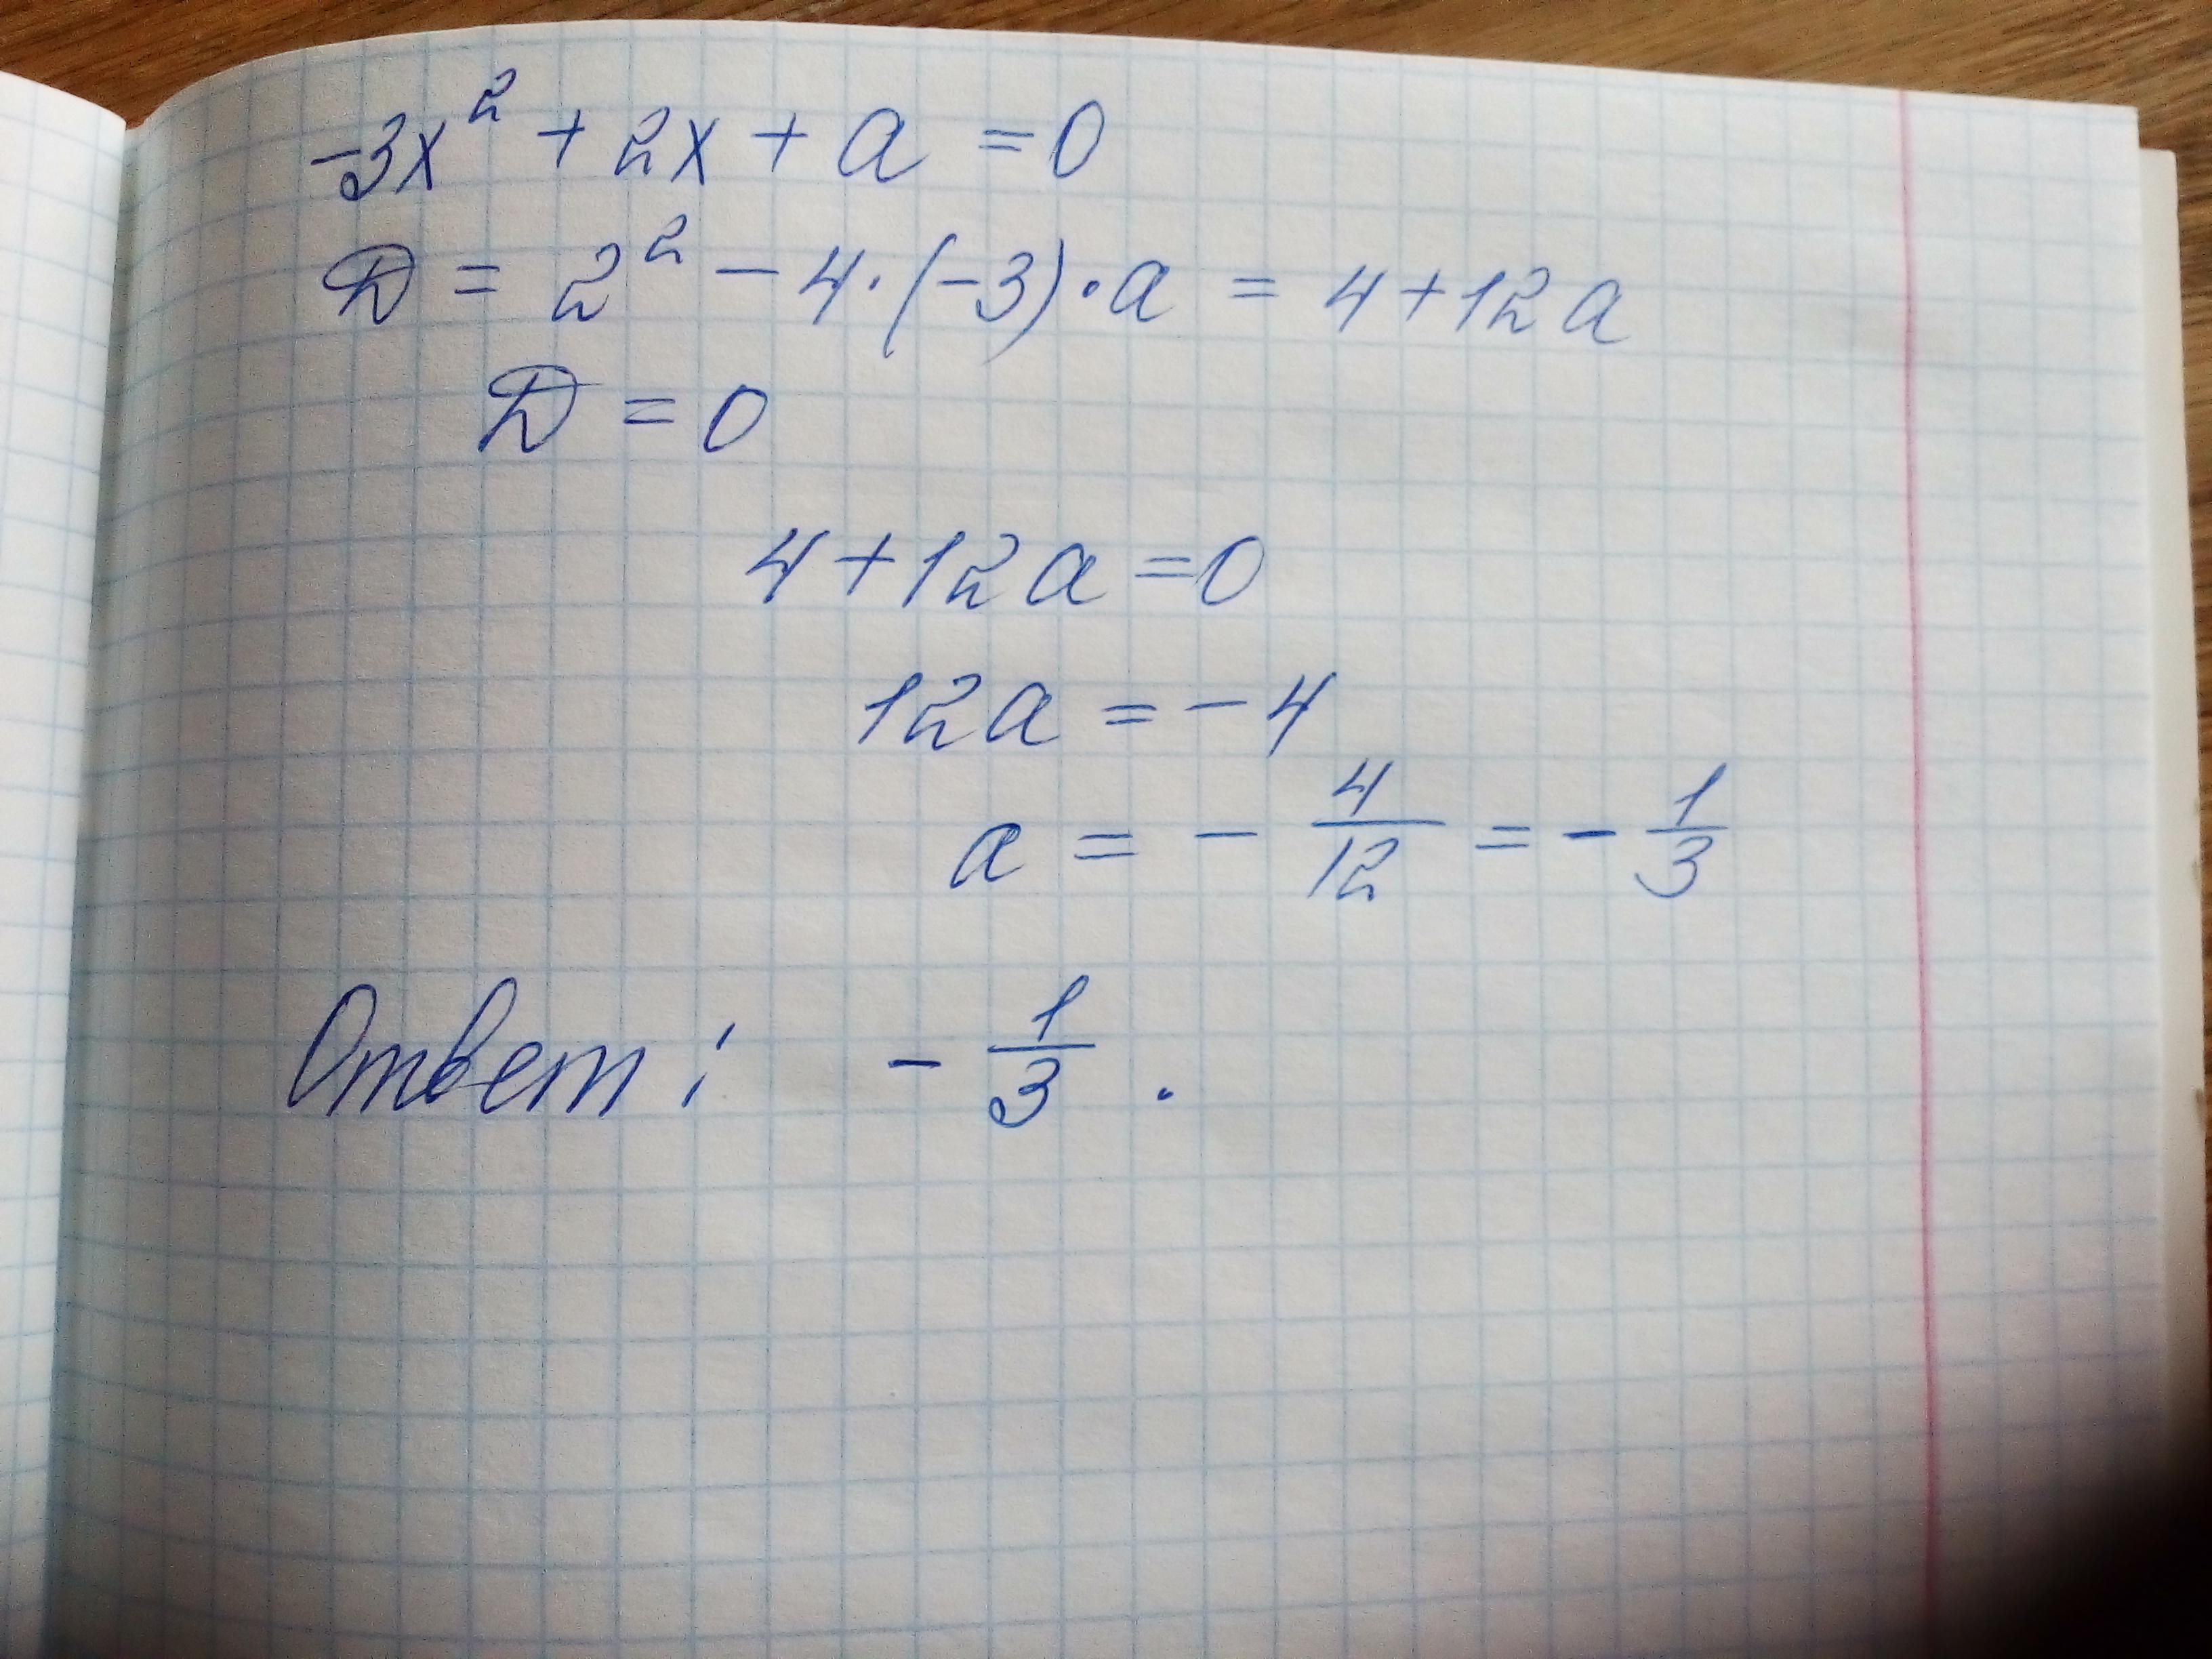 -3x² + 2x + a = 0
D = 2² - 4·(-3)·a = 4+12a
D = 0
4+12a=0
12a = -4
a = - 4/12 = - 1/3
Ответ: - 1/3 .